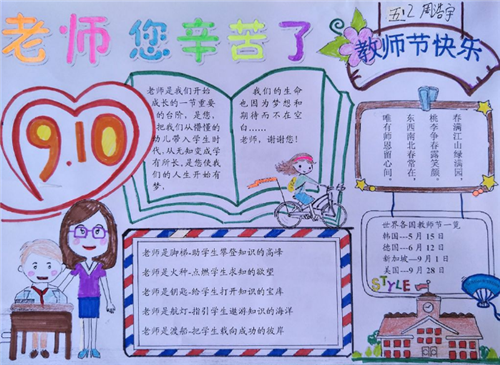 老师您辛苦了
五.2 周浩宇
教师节快乐
9.10
老师是我们开始
成长的一节重要
的台阶，是您，
把我们从懵懂的
幼儿带入学生时
代、从无知变成学
有所长，是您使我
们的人生开始有
梦，
我们的生命
也因为梦想和
期待而不在空
白......
老师，谢谢您！
春满江山绿满园，
桃李争春露笑颜。
东西南北春常在，
唯有师恩留心间。
世界各国教师节一览
韩国---5月15日
德国---6月12日
新加坡---9月1日
美国---9月28日
STYLE
老师是脚梯-助学生攀登知识的高峰
老师是火种-点燃学生求知的欲望
老师是钥匙-给学生打开知识的宝库
老师是航灯-指引学生遨游知识的海洋
老师是渡船-把学生载向成功的彼岸